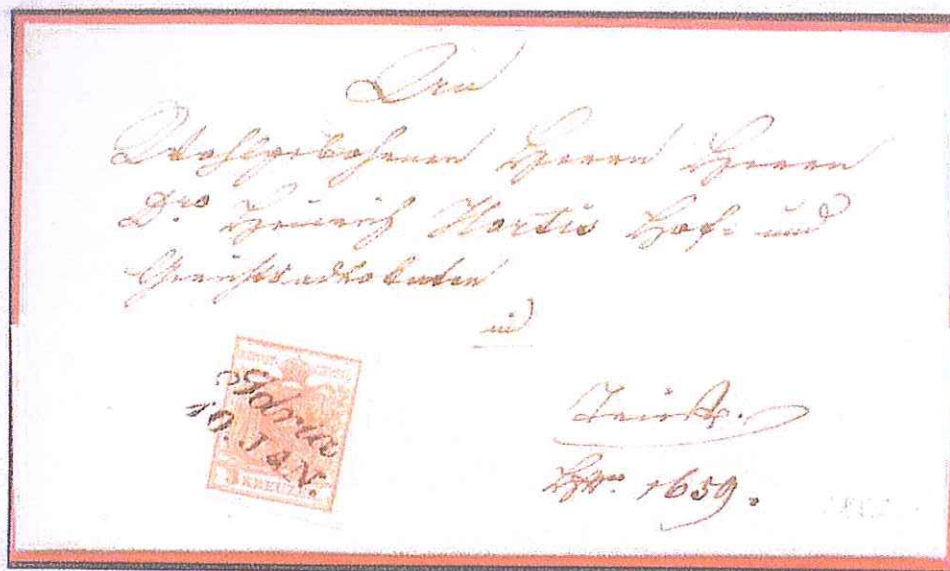 Den
Wohlgebohrenen Herrn Herrn
Dro Heinrich Hortis Hof- und
Gerichtsadvokaten
in
Triest.
HNr. 1659.
Idria
10. JAN.
3 KREUZER